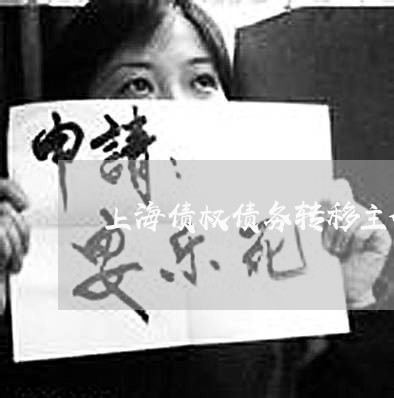 申請：
上海债权债务转移主
安乐死